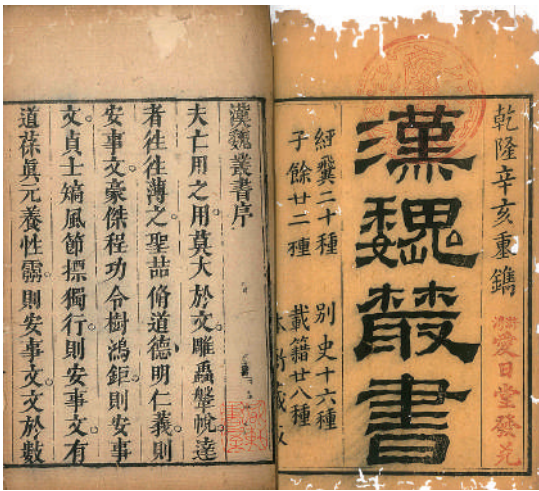 乾隆辛亥重鐫
愛日堂發兌
漢魏叢書
經翼二十種 別史十六種
子餘廿二種 載籍廿八種
漢魏叢書序
夫亡用之用莫大於文雕蟲鞶帨達
者往往薄之聖喆脩道德明仁義則
安事文豪傑程功令樹鴻鉅則安事
文貞士矯風節摽獨行則安事文有
道葆眞元養性靈則安事文文於數